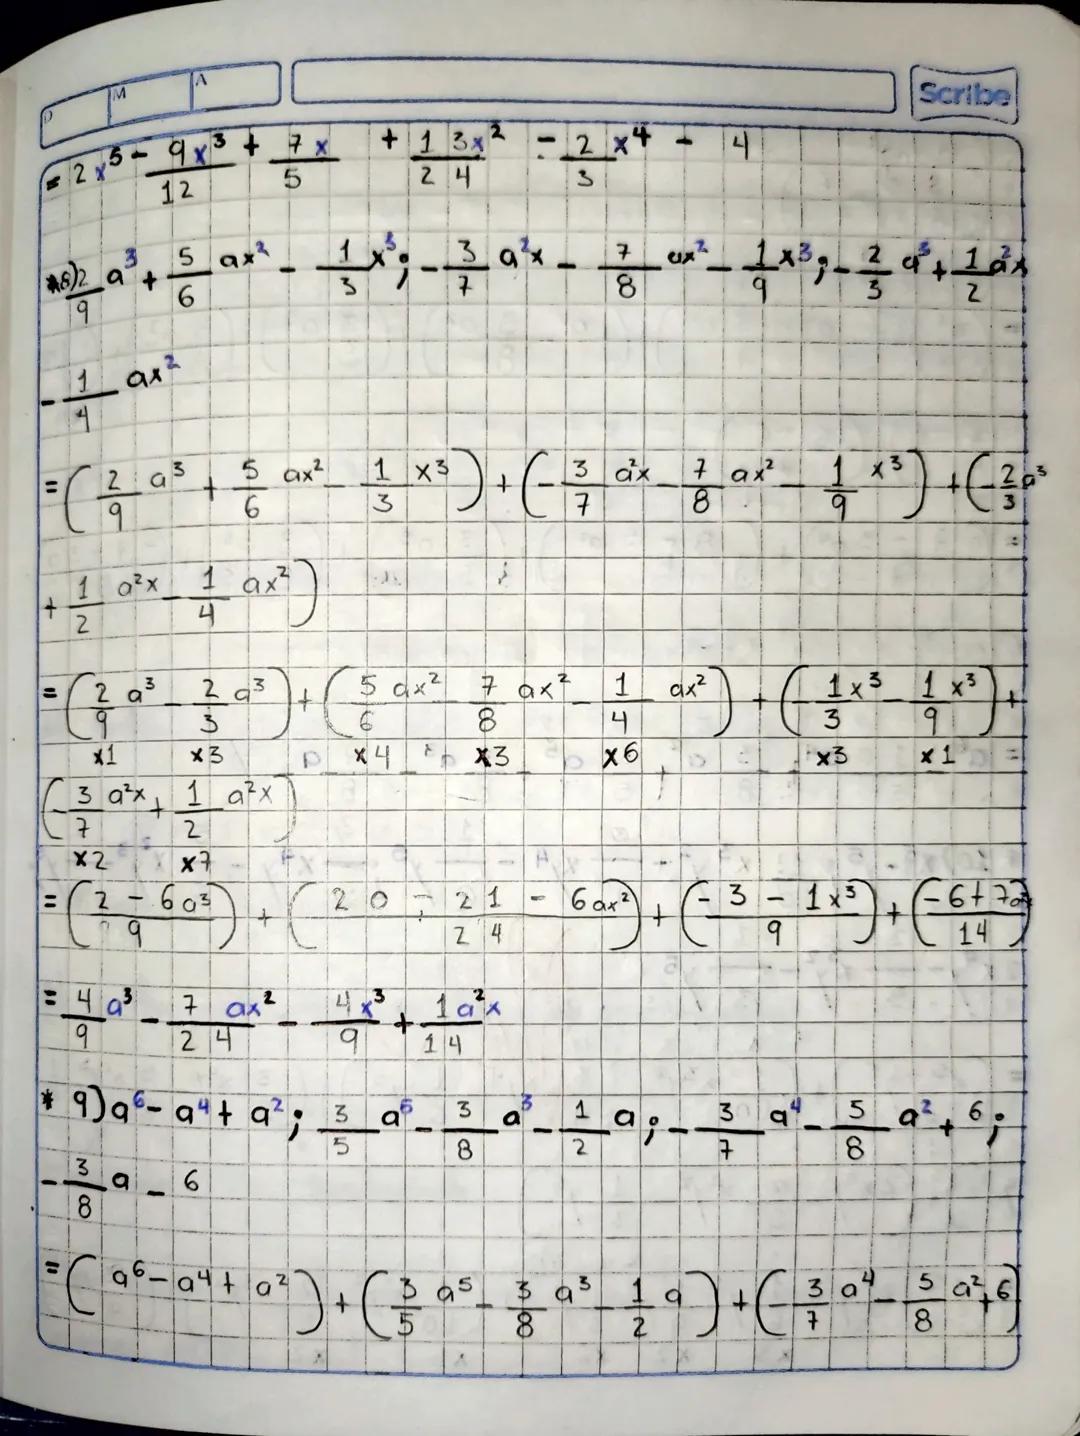 D M A Scribe
= 2x⁵ - 9x³/12 + 7x/5 + 13x²/24 - 2/3 x⁴ - 4
*8) 2/9 a³ + 5/6 ax² - 1/3 x³; - 3/7 a²x - 7/8 ax² - 1/9 x³; - 2/3 a³ + 1/2 a²x
- 1/4 ax²
= (2/9 a³ + 5/6 ax² - 1/3 x³) + (- 3/7 a²x - 7/8 ax² - 1/9 x³) + (- 2/3 a³
+ 1/2 a²x - 1/4 ax²)
= (2/9 a³ - 2/3 a³) + (5/6 ax² - 7/8 ax² - 1/4 ax²) + (- 1/3 x³ - 1/9 x³) +
x1 x3 x4 x3 x6 x3 x1
(- 3/7 a²x + 1/2 a²x)
x2 x7
= (2 - 6a³/9) + (20 - 21 - 6ax²/24) + (- 3 - 1x³/9) + (- 6 + 7a²/14)
= 4/9 a³ - 7/24 ax² - 4x³/9 + 1a²x/14
* 9) a⁶ - a⁴ + a²; 3/5 a⁵ - 3/8 a³ - 1/2 a; - 3/7 a⁴ - 5/8 a² + 6;
- 3/8 a - 6
= (a⁶ - a⁴ + a²) + (3/5 a⁵ - 3/8 a³ - 1/2 a) + (- 3/7 a⁴ - 5/8 a² + 6)